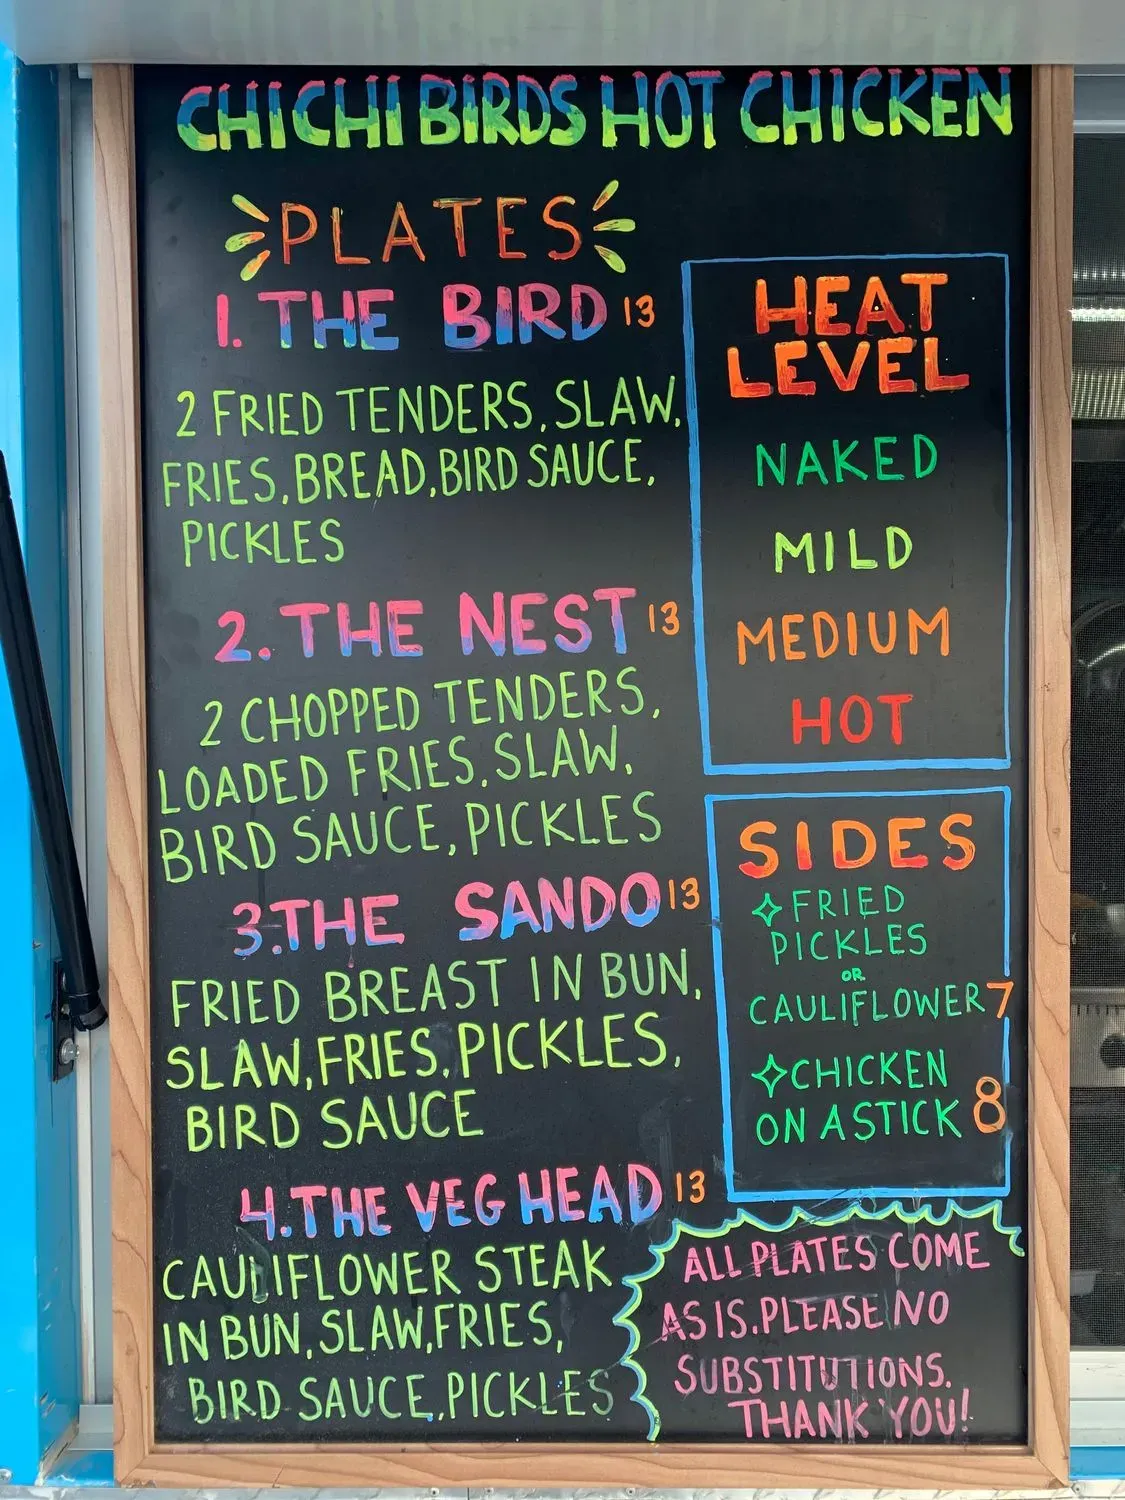 CHICHI BIRDS HOT CHICKEN
PLATES
1. THE BIRD 13
2 FRIED TENDERS, SLAW,
FRIES, BREAD, BIRD SAUCE,
PICKLES
2. THE NEST 13
2 CHOPPED TENDERS,
LOADED FRIES, SLAW,
BIRD SAUCE, PICKLES
3. THE SANDO 13
FRIED BREAST IN BUN,
SLAW, FRIES, PICKLES,
BIRD SAUCE
4. THE VEG HEAD 13
CAULIFLOWER STEAK
IN BUN, SLAW, FRIES,
BIRD SAUCE, PICKLES
HEAT
LEVEL
NAKED
MILD
MEDIUM
HOT
SIDES
FRIED
PICKLES
OR
CAULIFLOWER 7
CHICKEN
ON A STICK 8
ALL PLATES COME
AS IS. PLEASE NO
SUBSTITUTIONS.
THANK YOU!